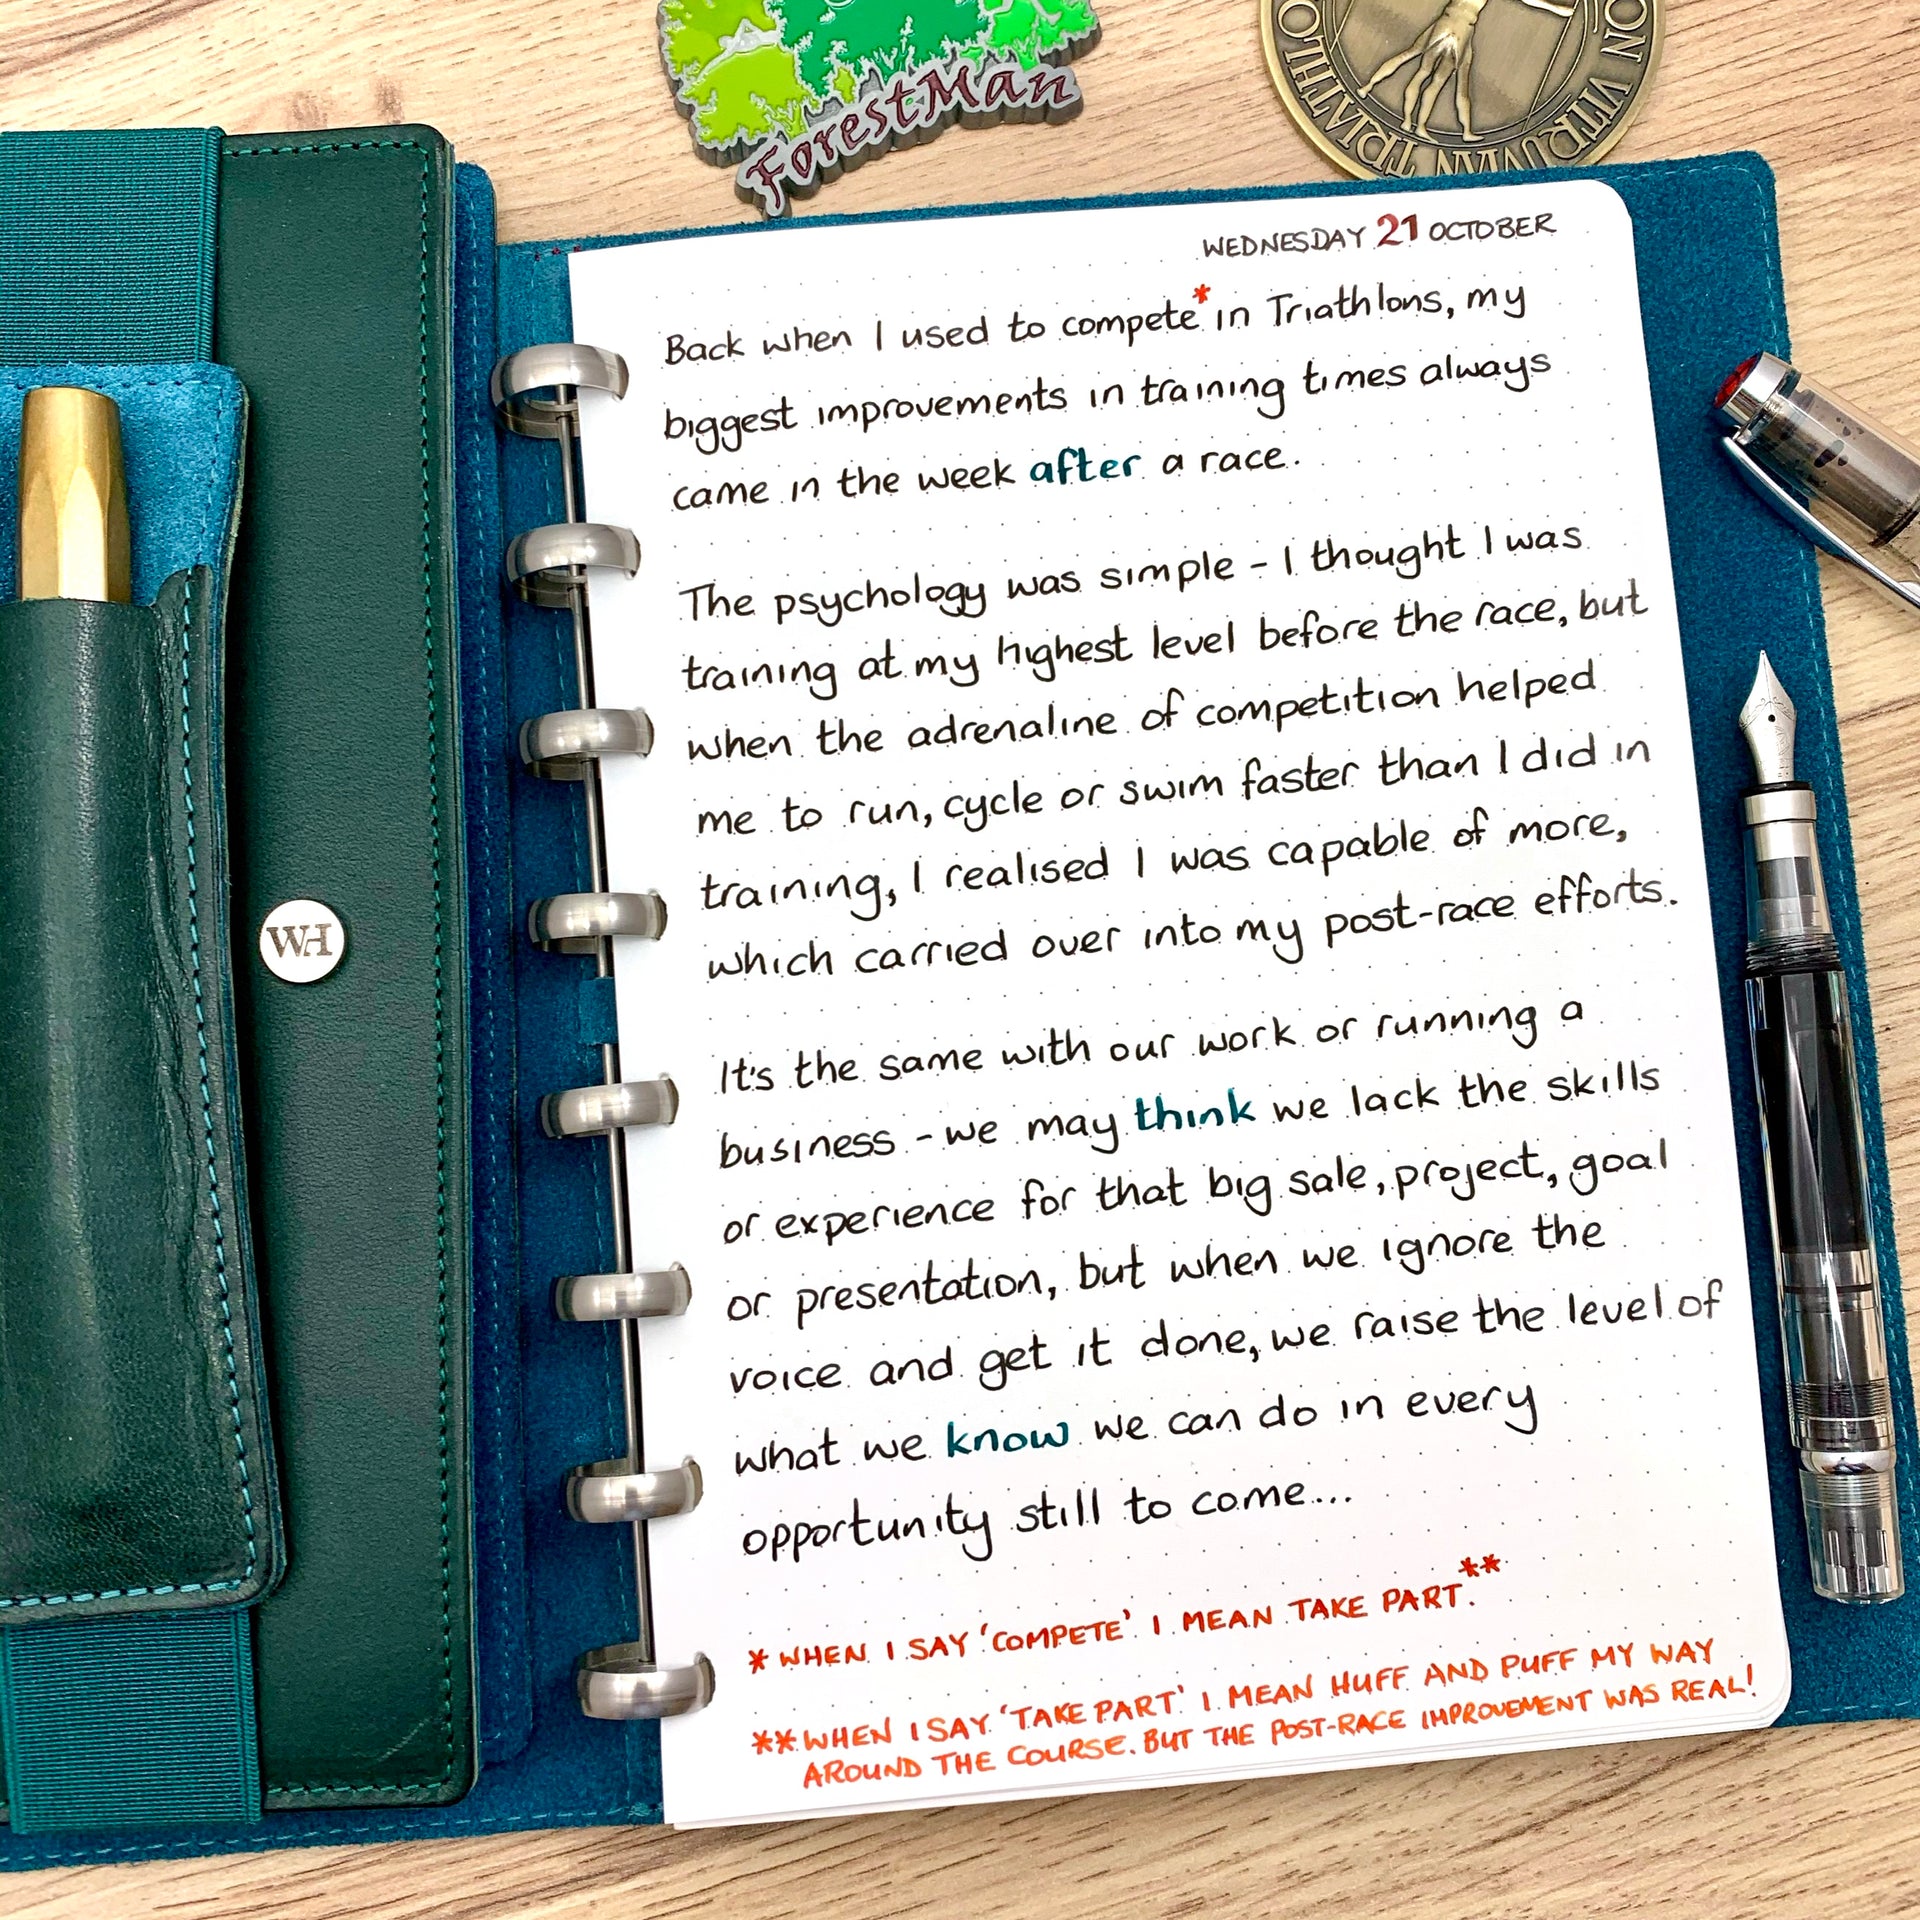 ForestMan
ON VITRUVIAN TRIATHLO
WH
WEDNESDAY 21 OCTOBER
Back when I used to compete* in Triathlons, my
biggest improvements in training times always
came in the week after a race.
The psychology was simple - I thought I was
training at my highest level before the race, but
when the adrenaline of competition helped
me to run, cycle or swim faster than I did in
training, I realised I was capable of more,
which carried over into my post-race efforts.
It's the same with our work or running a
business - we may think we lack the skills
or experience for that big sale, project, goal
or presentation, but when we ignore the
voice and get it done, we raise the level of
what we know we can do in every
opportunity still to come...
* WHEN I SAY 'COMPETE' I MEAN TAKE PART.**
** WHEN I SAY 'TAKE PART' I MEAN HUFF AND PUFF MY WAY
AROUND THE COURSE. BUT THE POST-RACE IMPROVEMENT WAS REAL!